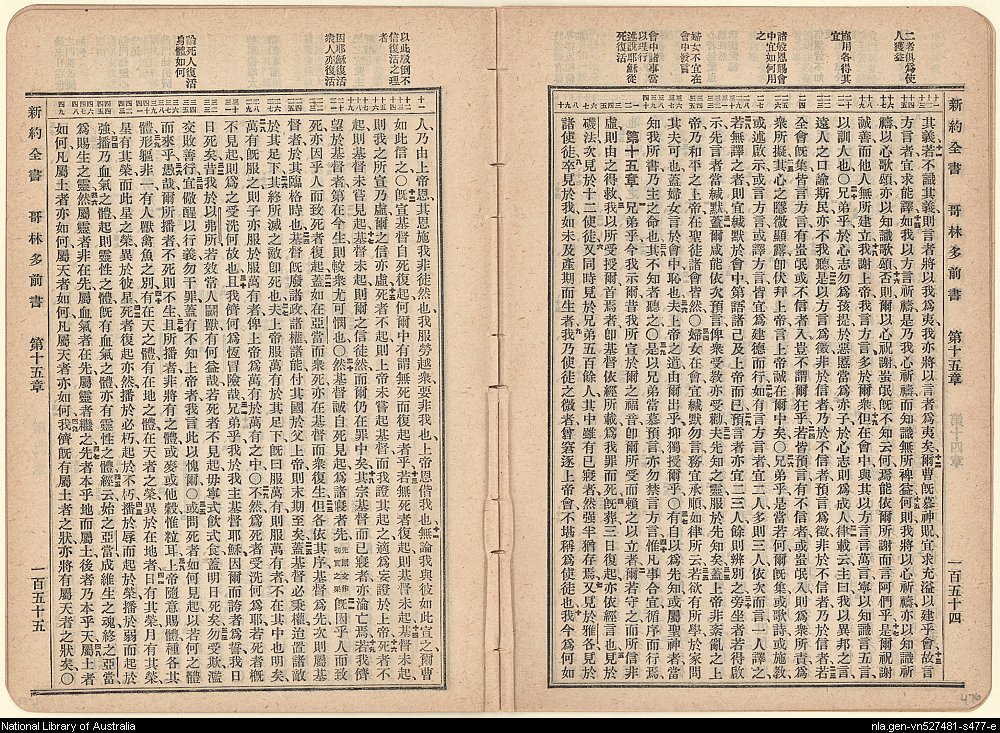 新約全書 哥林多前書 第十五章 一百五十四
二者俱為使人獲益
施用各得其宜
諸般恩賜會中宜如何用之
婦女不宜在會中發言
會中諸事當以理行
述說耶穌從死復活
其義若不識其義則言者將以我為夷我亦將以言者為夷矣爾曹既慕神賜宜求充溢以建乎會故言
方言者宜求能譯如我以方言祈禱是乃我心祈禱而知識無所裨益何則我將以心祈禱亦以知識祈
禱以心歌頌亦以知識歌頌否則爾以心祝謝蚩氓既不知云何焉能依爾所謝而言阿們乎是爾祝謝
誠善而他人無所建立我謝上帝我言方言多於爾衆但在會中與其以方言言萬言寧以知識言五言
以訓人也○兄弟乎於心志勿為孩提於惡慝當為赤子於心志則為成人律載云主曰我以異邦之言
遠人之口諭斯民亦不我聽是以方言為徵非於信者乃於不信者預言為徵非於不信者乃於信者若
全會既集皆言方言有蚩氓或不信者入豈不謂爾狂乎若皆預言有不信者或蚩氓入則為衆所責為
衆所擬其心之隱微顯露即伏拜上帝言上帝誠在爾中矣○兄弟乎是當若何爾既集或歌詩或施教
或述啟示或言方言或譯方言皆宜為建德而行如有言方言者宜二人多則三人依次而言一人譯之
若無譯之者則宜緘默於會中第語諸己及上帝而已預言者亦宜二三人餘則辨別之旁坐者若得啟
示先言者當緘默蓋爾咸能依次預言俾衆受教亦受勸夫先知之靈服於先知矣蓋上帝非紊亂之上
帝乃和平之上帝在聖徒諸會皆然○婦女在會宜緘默勿言務宜承順如律所云若欲有所學於家問
其夫可也蓋婦女言於會中恥也夫上帝之道由爾出乎抑獨授爾乎○有自以為先知或屬聖神者當
知我所書乃主之命也其不知者聽之○是以兄弟當慕預言亦勿禁言方言惟凡事各宜循序而行焉
第十五章 兄弟乎今我示爾昔我所宣於爾之福音即爾所受而賴之以立者爾若守之而所信非
虛則由之得救我以所受授爾首焉者即基督依經所載為我罪而死既葬三日復起亦依經言也見於
磯法次見於十二使徒又同時見於兄弟五百餘人其中雖有已寢者然强半猶存焉又見於雅各見於
諸使徒卒見於我如未及產期而生者我乃使徒之微者曾窘逐上帝會不堪稱為使徒也我今為何如
以此駁倒不信復活之理者
因耶穌復活衆人亦復活
論死人復活身體如何
人乃由上帝恩其恩施我非徒然也我服勞越衆要非我也上帝恩偕我也無論我與彼如此宣之爾曹
如此信之○既宣基督自死復起何爾中有謂無死而復起者乎若無死者復起則基督未起基督未起
則我之所宣乃虛爾之信亦虛死者不起則上帝未嘗起基督而我證其起之適為妄證於上帝死者不
起則基督未嘗見起基督未起則爾之信徒然而爾仍在罪中矣其宗基督而已寢者亦淪亡焉若我儕
望於基督者第在今生則較衆尤可憫也○然基督誠自死見起為諸寢者先既因乎人而致
死亦因乎人而致死者復起蓋如在亞當而衆死亦在基督而衆復生但各依其序基督為先次則屬基
督者於其臨格時也基督既廢諸政諸權諸能付其國於父上帝則末期至矣蓋基督必秉權迨置諸敵
於其足下其終所滅之敵即死也夫上帝服萬有於其足下既曰服萬有則服萬有者不在其中也明矣
萬有既服之則子亦服於服萬有者俾上帝為萬有於萬有之中○不然為死者受洗何為耶若死者概
不見起則為之受洗何故也且我儕何為恆冒險哉兄弟乎我於我主基督耶穌因爾而誇者誓我日
日死矣昔我於以弗所若效常人鬭獸有何益哉若死者不見起毋寧式飲式食蓋明日死矣勿受欺濫
交敗善行宜儆醒以行義勿干罪蓋有不知上帝者我言此以愧爾○或問死者如何見起以若何之體
而來乎愚哉爾所播者不死則不生且所播者非將有之體或麥或他穀惟粒耳上帝隨意賜體種各其
體形軀非一有人獸禽魚之別有在天之體有在地之體在天者之榮異於在地者日有其榮月有其榮
星有其榮而此星之榮異於彼星死者復起亦然播於必朽起於不朽播於辱而起於榮播於弱而起於
強播乃血氣之體起則靈性之體既有血氣之體亦有靈性之體經云始之亞當成維生之魂終之亞當
為賜生之靈然屬靈者非在先屬血氣者在先屬靈者繼之先者本乎地而屬土後者乃本乎天屬土者
如何凡屬土者亦如何屬天者如何凡屬天者亦如何我儕既有屬土者之狀亦將有屬天者之狀矣○
新約全書 哥林多前書 第十五章 一百五十五
476
National Library of Australia
nla.gen-vn527481-s477-e